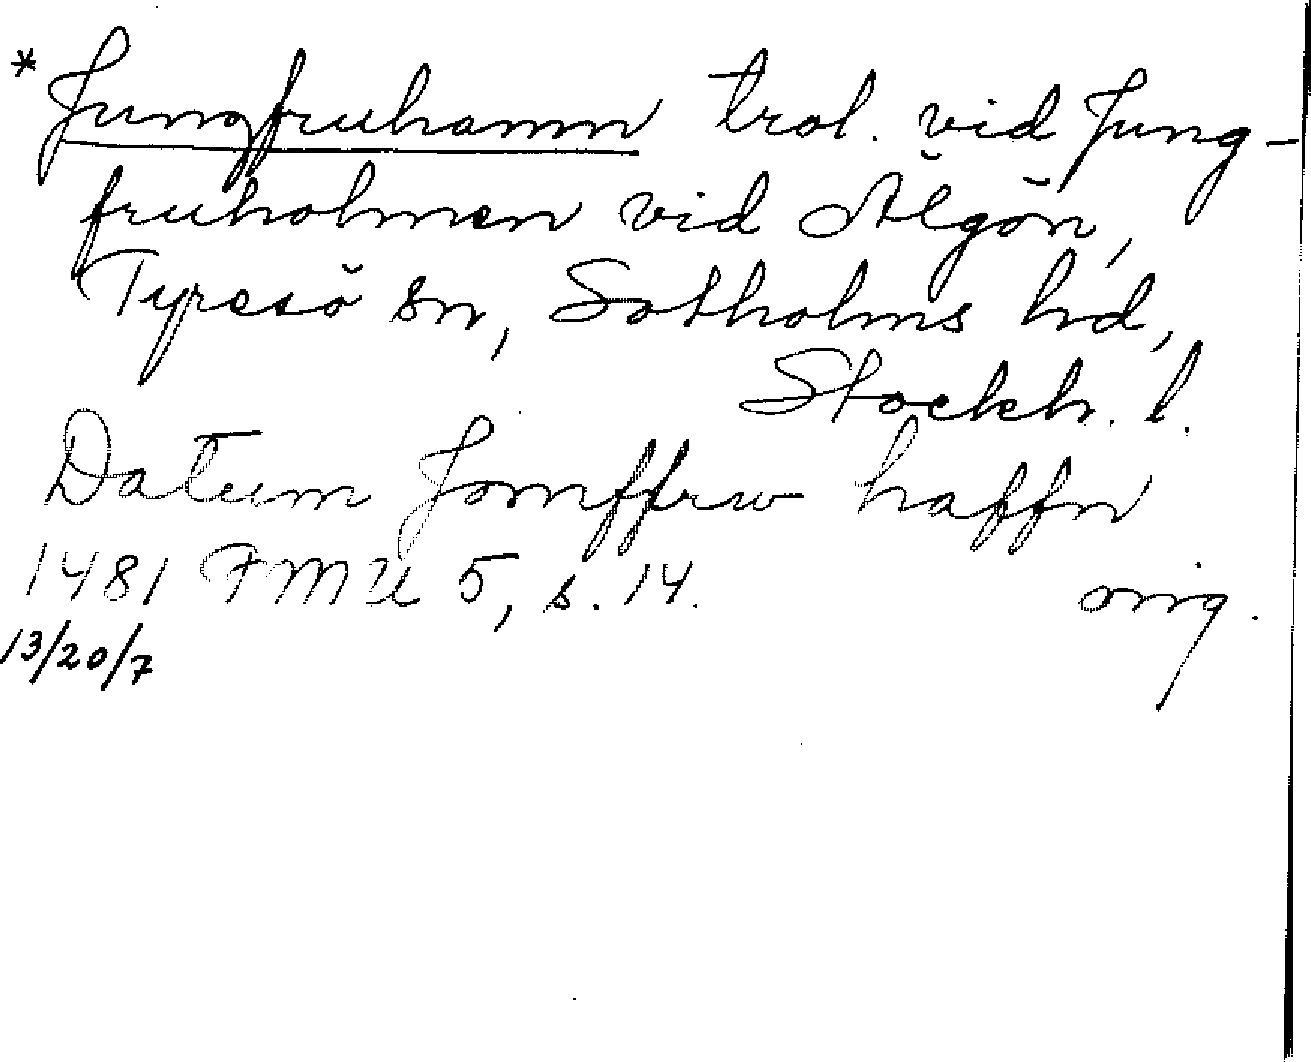 * Jungfruhamn trol. vid Jung-
fruholmen vid Älgön,
Tyresö sn, Sotholms hd,
Stockh. l.
Datum Jomffrw haffn
1481 FMU 5, s. 14. orig.
13/20/7